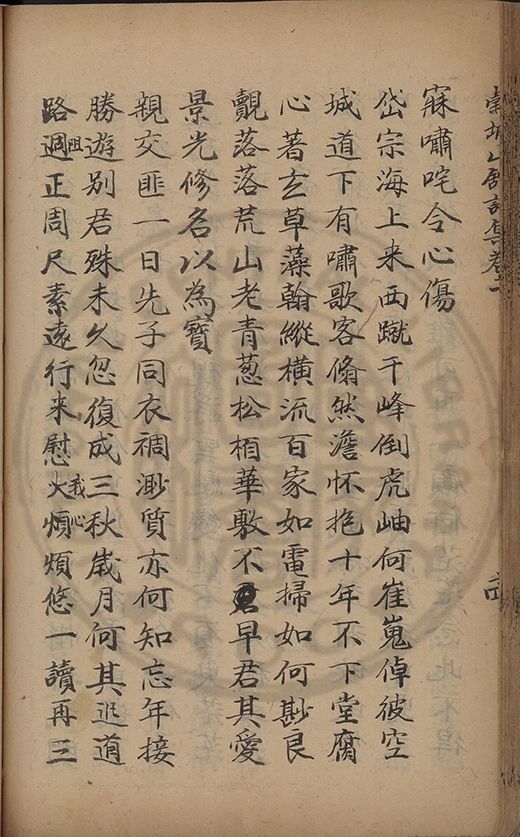 山房詩集卷
寐嘯咤令心傷
岱宗海上来西蹴千峰倒虎岫何崔嵬倬彼空
城道下有嘯歌客翛然澹怀抱十年不下堂腐
心著玄草藻翰縱橫流百家如電掃如何尠良
覿落落荒山老青葱松栢華敷不早君其愛
景光修名以為寳
親交匪一日先子同衣裯渺質亦何知忘年接
勝遊别君殊未久忽復成三秋嵗月何其廹道
路阻正周尺素遠行来慰火我心煩煩悠一讀再三